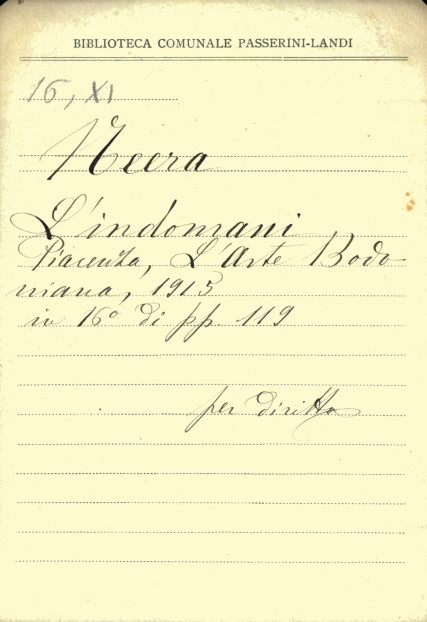 BIBLIOTECA COMUNALE PASSERINI-LANDI
16, XI
Neera
L'indomani
Piacenza, L'Arte Bodo-
niana, 1915
in 16° di pp 119
per diritto